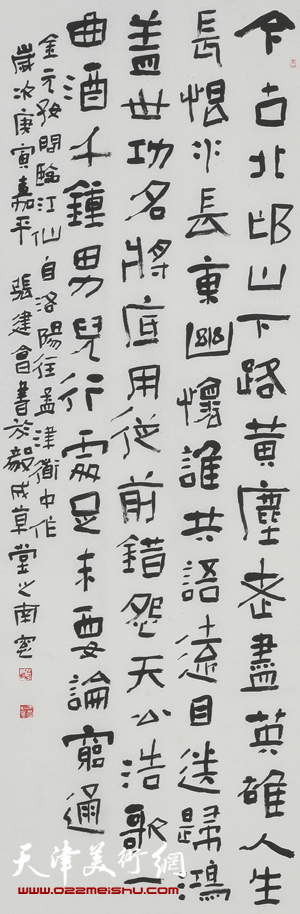 今古北邙山下路黄塵老盡英雄人生
長恨水長東幽懷誰共語遠目送歸鴻
盖世功名將底用從前錯怨天公浩歌一
曲酒千鍾男兒行處是未要論窮通
金元好問臨江仙 自洛陽往孟津衜中作
歲次庚寅嘉平 張建會書於毅成草堂之南窗
天津美術網
www.022meishu.com